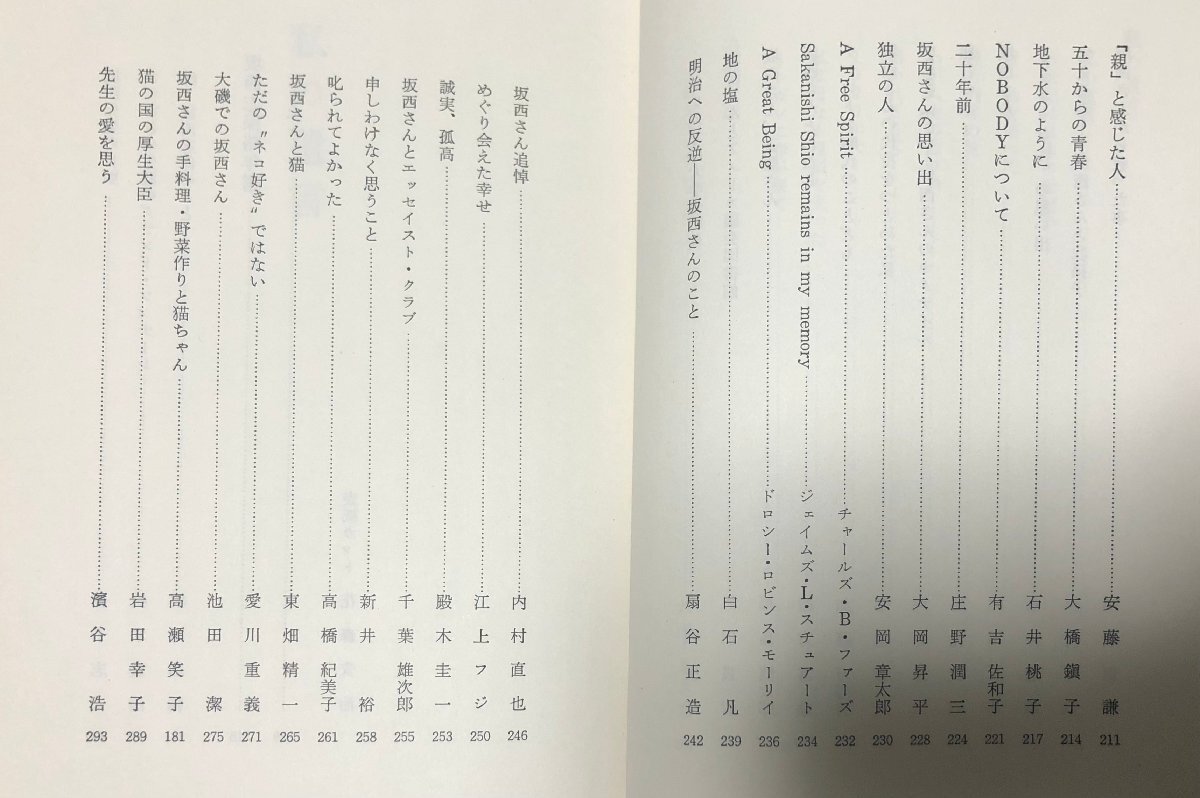 「親」と感じた人……安藤謙 211
五十からの青春……大橋鎭子 214
地下水のように……石井桃子 217
NOBODYについて……有吉佐和子 221
二十年前……庄野潤三 224
坂西さんの思い出……大岡昇平 228
独立の人……安岡章太郎 230
A Free Spirit……チャールズ・B・ファーズ 232
Sakanishi Shio remains in my memory……ジェイムズ・L・スチュアート 234
A Great Being……ドロシー・ロビンス・モーリイ 236
地の塩……白石凡 239
明治への反逆――坂西さんのこと……扇谷正造 242
坂西さん追悼……内村直也 246
めぐり会えた幸せ……江上フジ 250
誠実、孤高……殿木圭一 253
坂西さんとエッセイスト・クラブ……千葉雄次郎 255
申しわけなく思うこと……新井裕 258
叱られてよかった……高橋紀美子 261
坂西さんと猫……東畑精一 265
ただの〝ネコ好き〟ではない……愛川重義 271
大磯での坂西さん……池田潔 275
坂西さんの手料理・野菜作りと猫ちゃん……高瀬笑子 181
猫の国の厚生大臣……岩田幸子 289
先生の愛を思う……濱谷浩 293